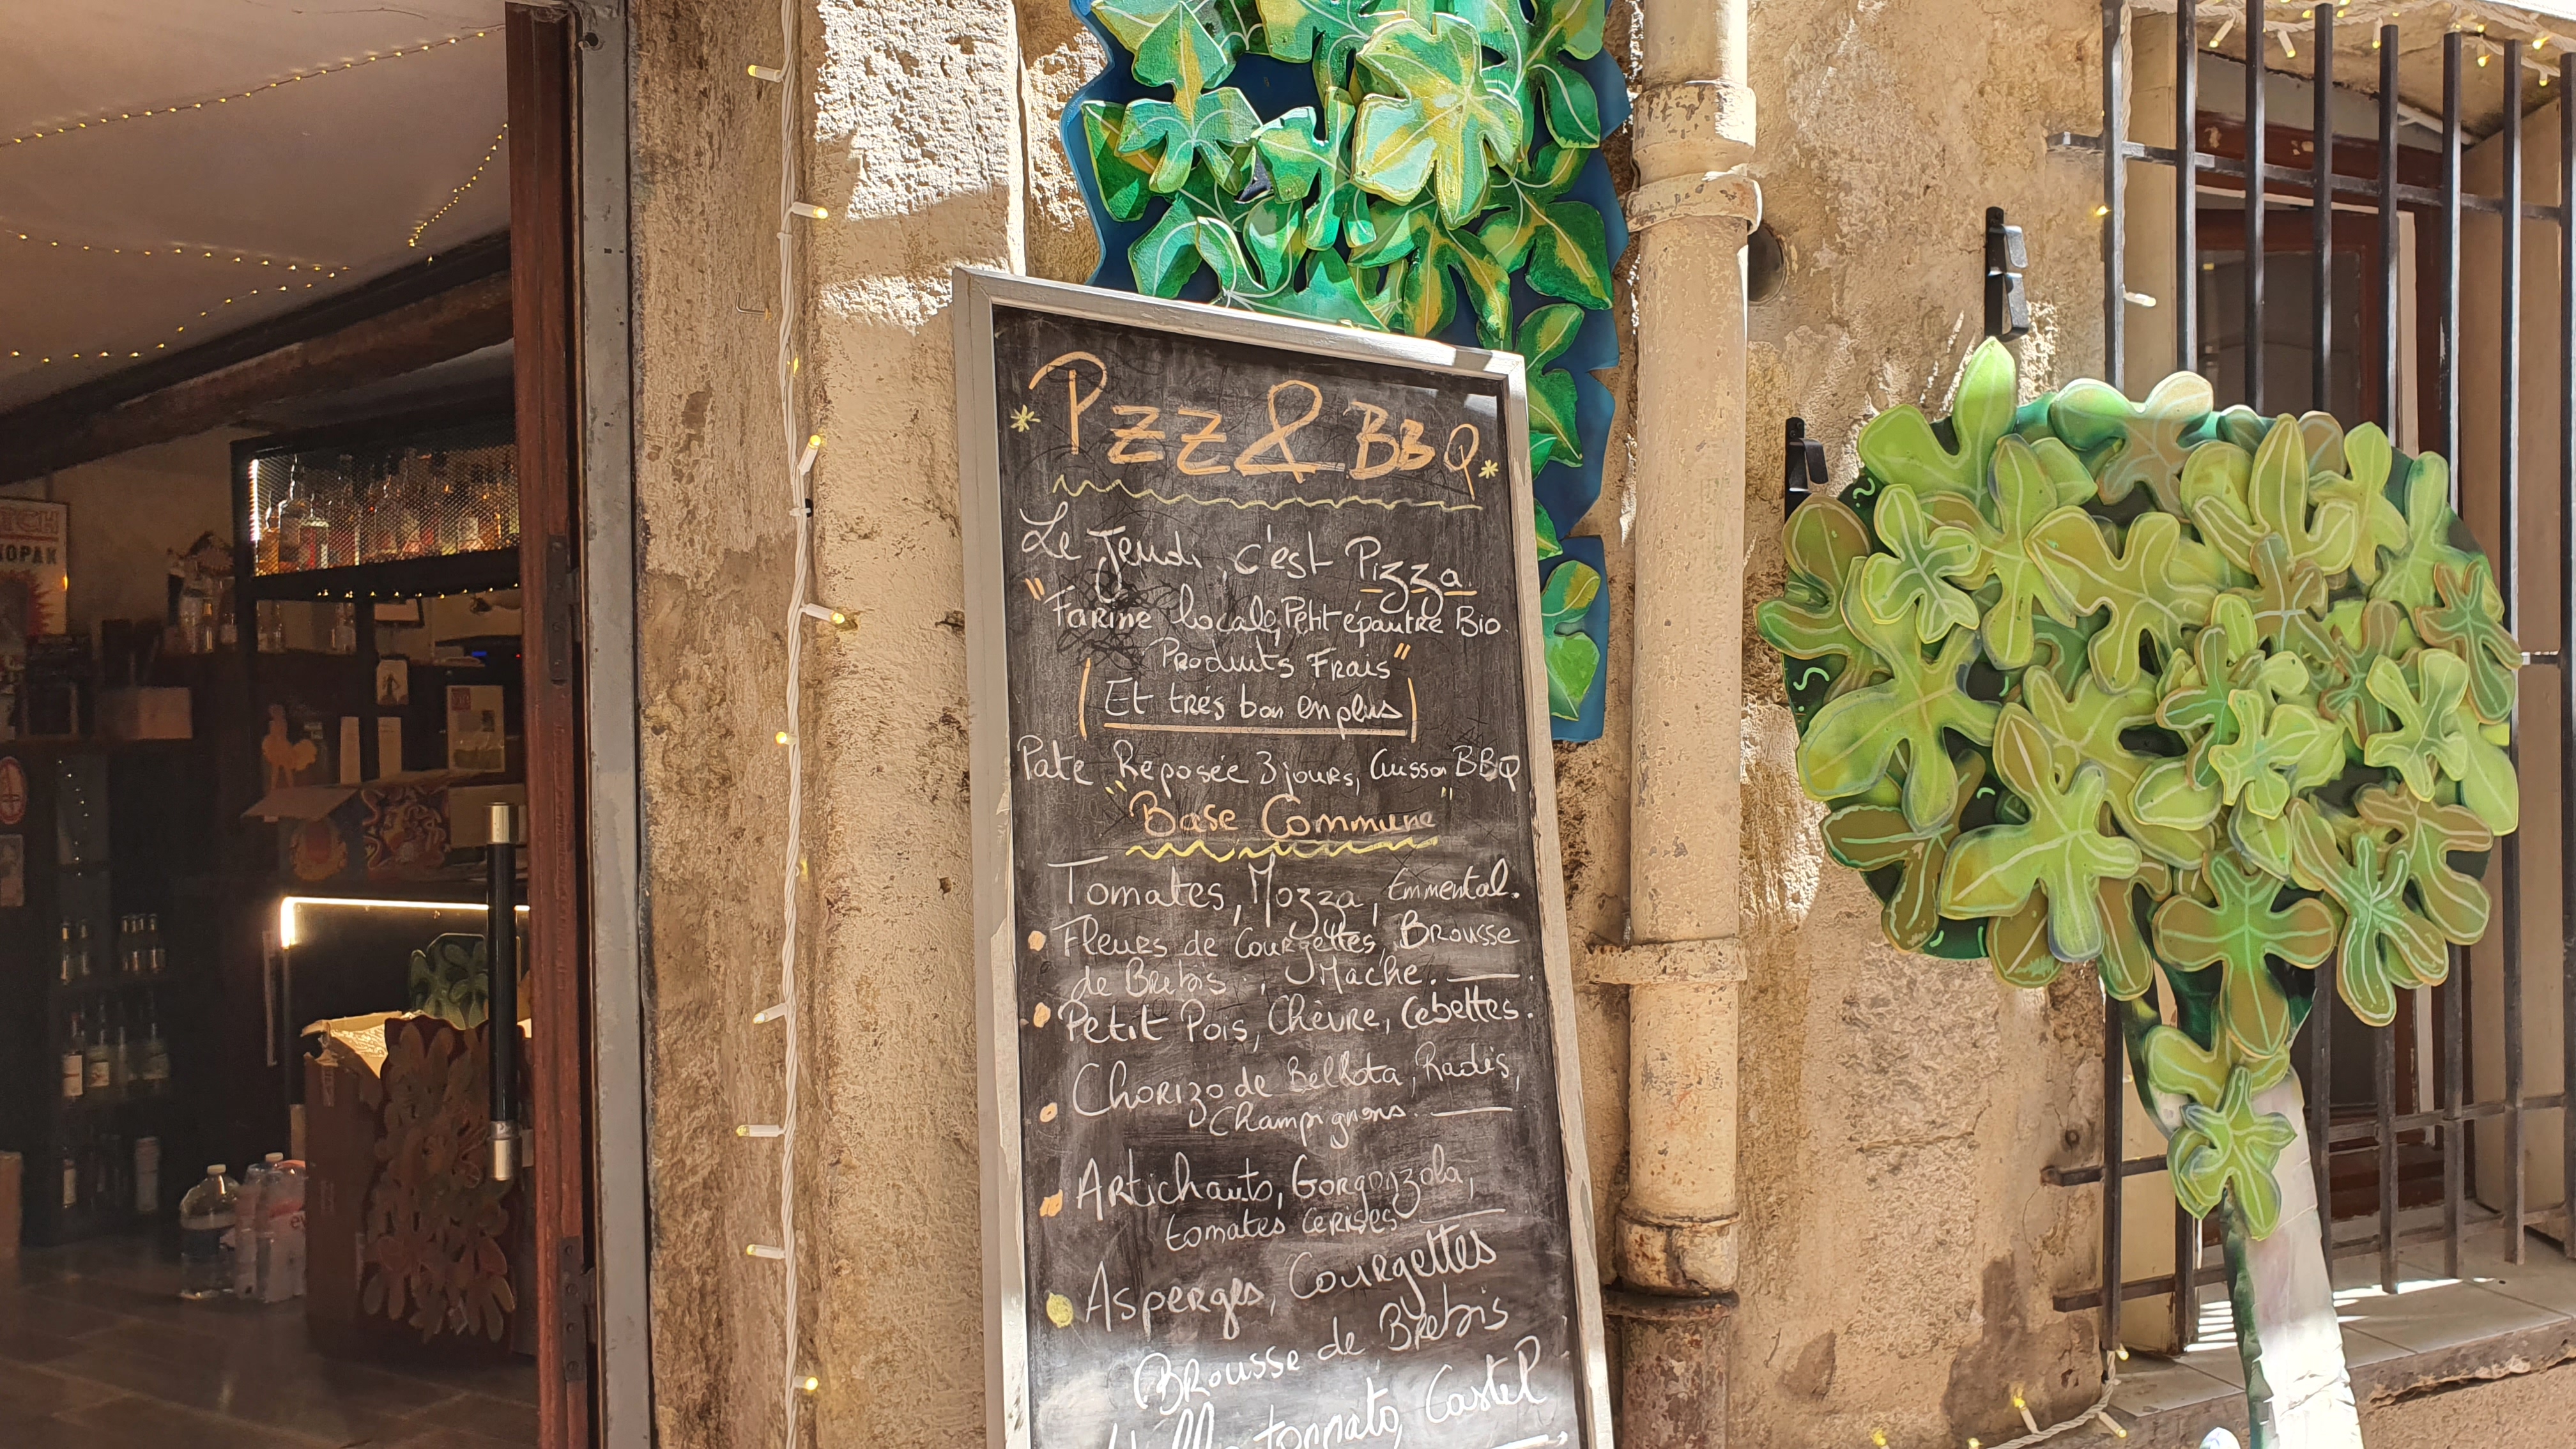 TCH
KOPAK
Pzz & BBQ
Le Jeudi, c'est Pizza.
"Farine locale, Petit épautre Bio
Produits Frais"
(Et trés bon en plus)
Pate Reposée 3 jours, Cuisson BBQ
"Base Commune"
Tomates, Mozza, Emmental.
Fleurs de Courgettes, Brousse
de Brebis, Mache.
Petit Pois, Chèvre, Cebettes.
Chorizo de Bellota, Radis,
Champignons.
Artichauts, Gorgonzola,
tomates cerises
Asperges, Courgettes
Brousse de Brebis
tonnato, Castel